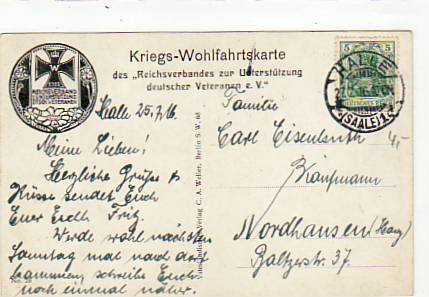 Kriegs-Wohlfahrtskarte
des „Reichsverbandes zur Unterstützung
deutscher Veteranen e. V."
Halle 25.7.16.
Meine Lieben!
Herzliche Grüße &
Küsse sendet Euch
Euer Fritz.
Werde wohl nächsten
Sonntag mal nach dort
kommen, schreibe Euch
noch einmal näher.
Verlag C. A. Weller, Berlin S.W. 68
Familie
Carl
Kaufmann
Nordhausen (Harz)
Baltzerstr. 37.
5 5
HALLE
(SAALE) 1
4,-